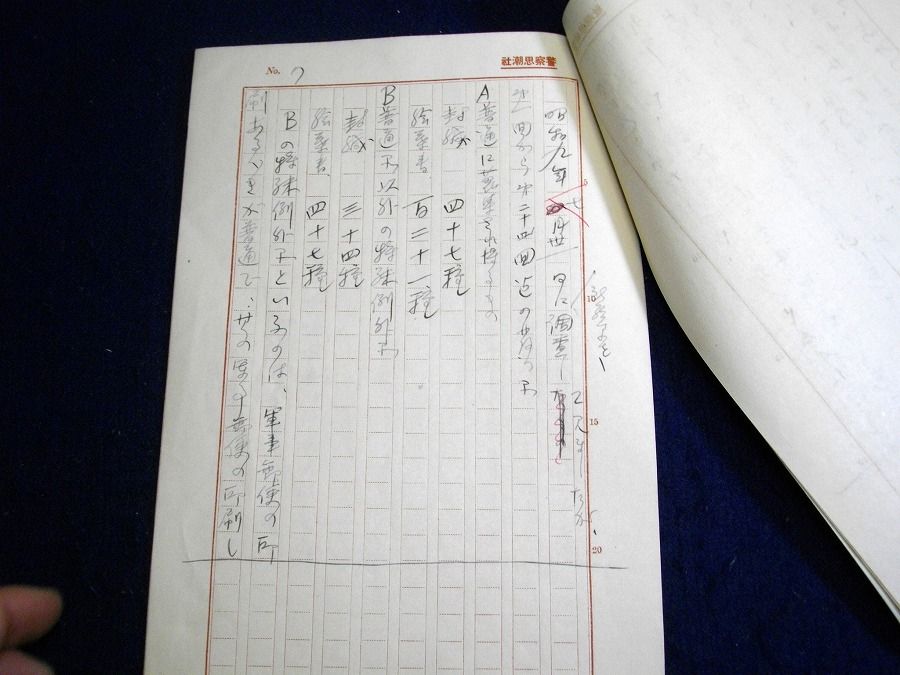 警察思潮社
No. 7
昭和九年七月廿一日に調査し
第一回から第二十四回迄の
A 普通に蒐集され得るもの
封緘 四十七種
絵葉書、百二十一種
B 普通品以外の特殊例外品
封緘 三十四種
絵葉書、四十七種
Bの特殊例外品といふのは、軍事郵便の印
刷あるべきが普通で、其の軍事郵便の印刷し
10
15
20